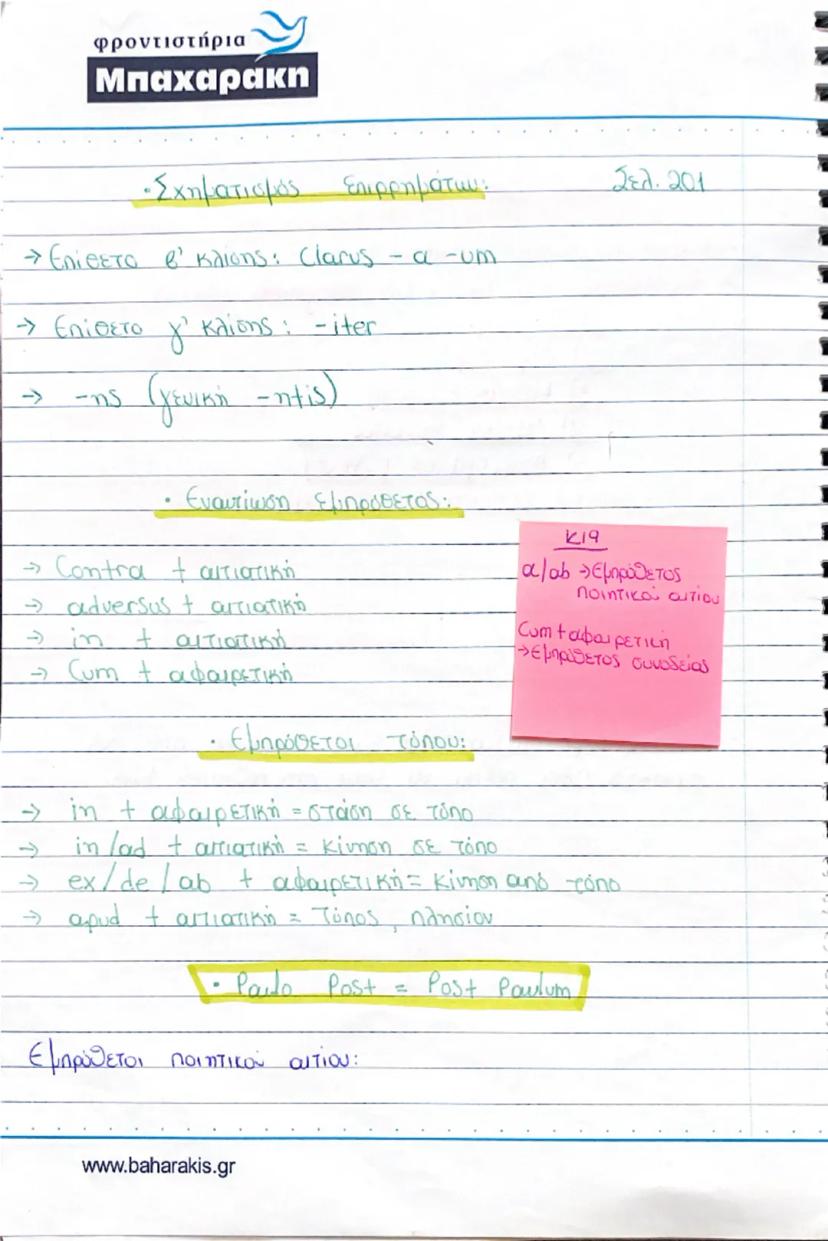 φροντιστήρια
Μπαχαράκη
• Σχηματισμός επιρρημάτων: Σελ. 201
→ Επίθετο β' κλίσης: Clarus - a - um
→ Επίθετο γ' κλίσης: -iter
→ -ns (γενική -ntis)
• Εναντίωση εμπρόθετος:
→ Contra + αιτιατική
→ adversus + αιτιατική
→ in + αιτιατική
→ Cum + αφαιρετική
Κ19
a/ab → Εμπρόθετος
ποιητικού αιτίου
Cum + αφαιρετική
→ Εμπρόθετος συνοδείας
• Εμπρόθετοι τόπου:
→ in + αφαιρετική = στάση σε τόπο
→ in/ad + αιτιατική = κίνηση σε τόπο
→ ex/de/ab + αφαιρετική = κίνηση από τόπο
→ apud + αιτιατική = τόπος, πλησίον
• Paulo Post = Post Paulum
Εμπρόθετοι ποιητικού αιτίου:
www.baharakis.gr